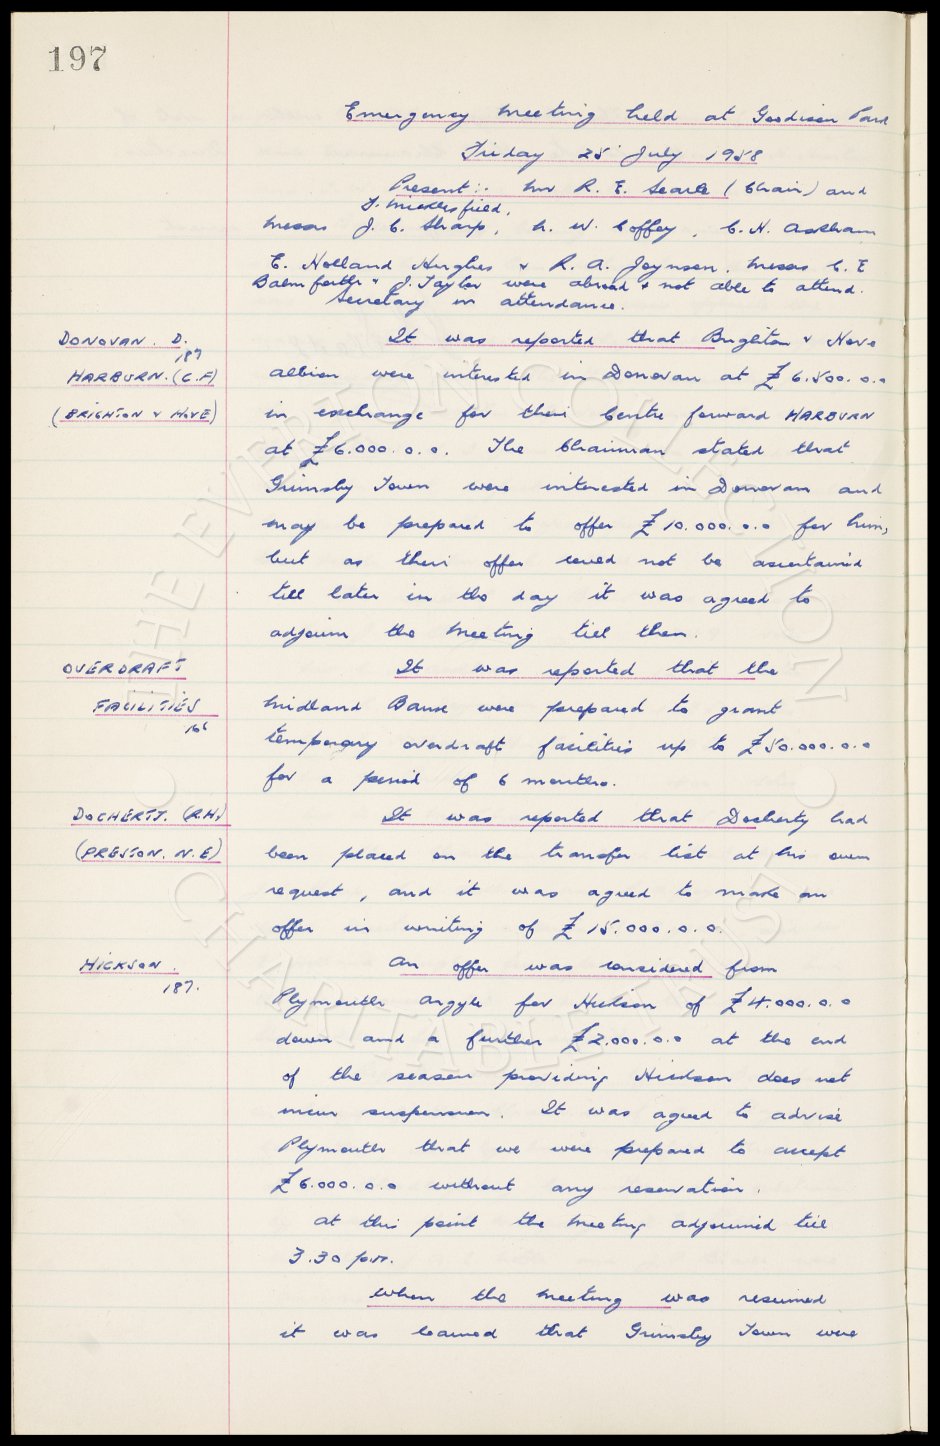 197
Emergency Meeting held at Goodison Park
Friday 25' July 1958
Present:- Mr R. E. Searle (Chair) and
T. Micklesfield,
Messrs J. C. Sharp, N. W. Coffey, C. H. Askham
E. Holland Hughes & R. A. Joynson. Messrs C. E
Balmforth & J. Taylor were abroad & not able to attend.
Secretary in attendance.
DONOVAN. D.
187
HARBURN. (C.F)
(BRIGHTON & HOVE)
It was reported that Brighton & Hove
Albion were interested in Donovan at £6.500.0.0
in exchange for their Centre forward HARBURN
at £6.000.0.0. The Chairman stated that
Grimsby Town were interested in Donovan and
may be prepared to offer £10.000.0.0 for him,
but as their offer could not be ascertained
till later in the day it was agreed to
adjourn the Meeting till then.
OVERDRAFT
FACILITIES
166
It was reported that the
Midland Bank were prepared to grant
temporary overdraft facilities up to £50.000.0.0
for a period of 6 months.
DOCHERTY. (R.H)
(PRESTON. N.E)
It was reported that Docherty had
been placed on the transfer list at his own
request, and it was agreed to make an
offer in writing of £15.000.0.0.
HICKSON.
187.
An offer was considered from
Plymouth Argyle for Hickson of £4.000.0.0
down and a further £2.000.0.0 at the end
of the season providing Hickson does not
incur suspension. It was agreed to advise
Plymouth that we were prepared to accept
£6.000.0.0 without any reservation.
At this point the Meeting adjourned till
3.30 p.m.
When the Meeting was resumed
it was learned that Grimsby Town were
THE EVERTON COLLECTION
CHARITABLE TRUST